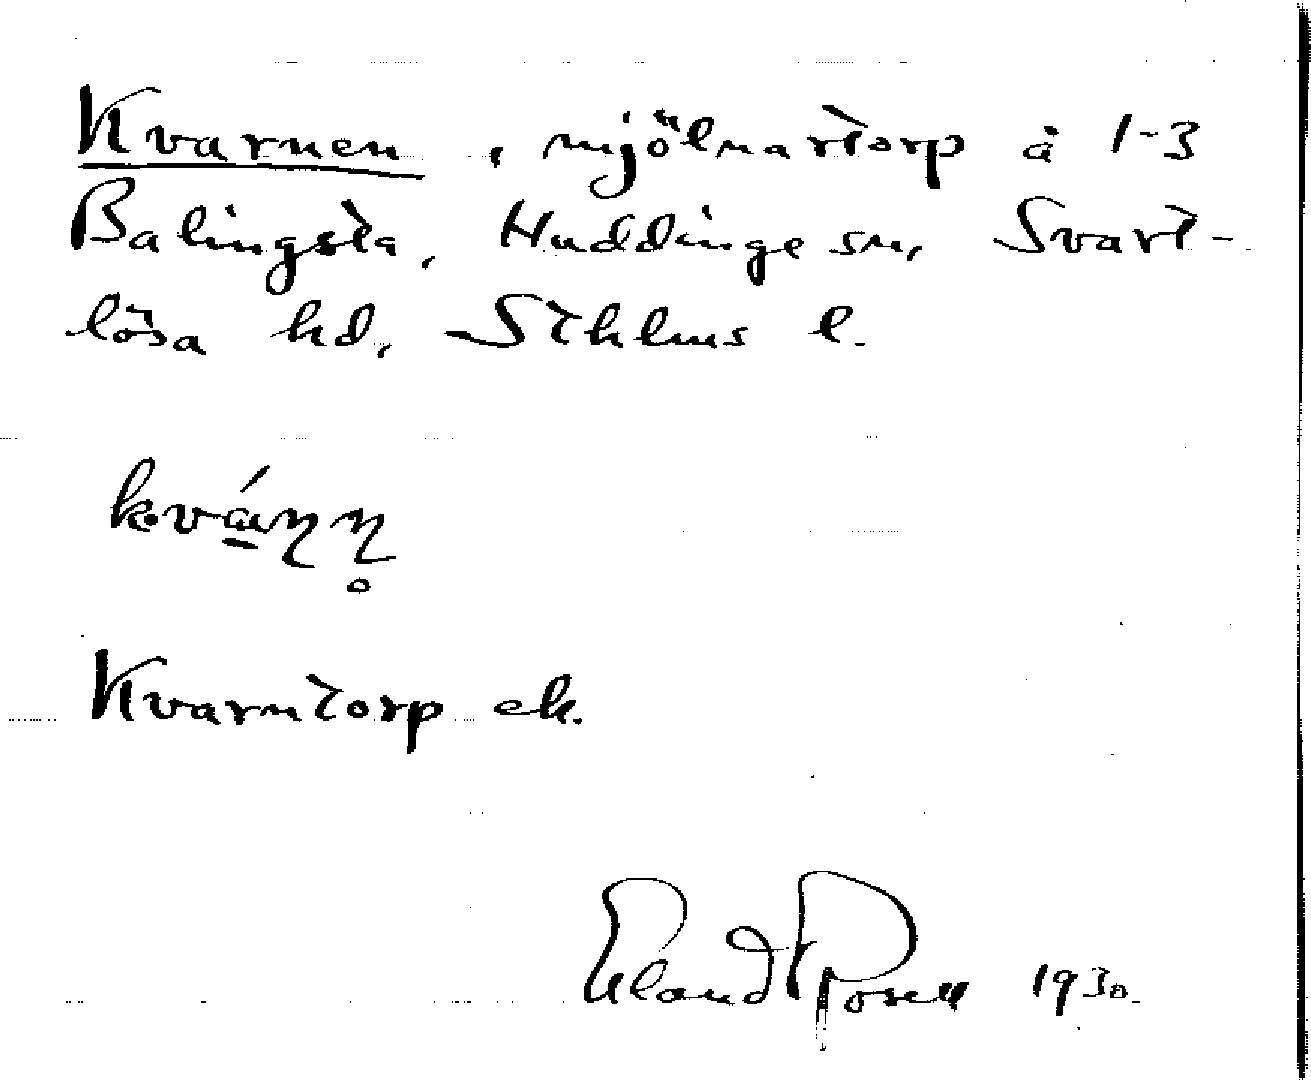 Kvarnen, mjölnartorp å 1-3
Balingsta, Huddinge sn, Svart-
lösa hd, Sthlms l.
Kvarntorp ek.
Erland Rosell 1930